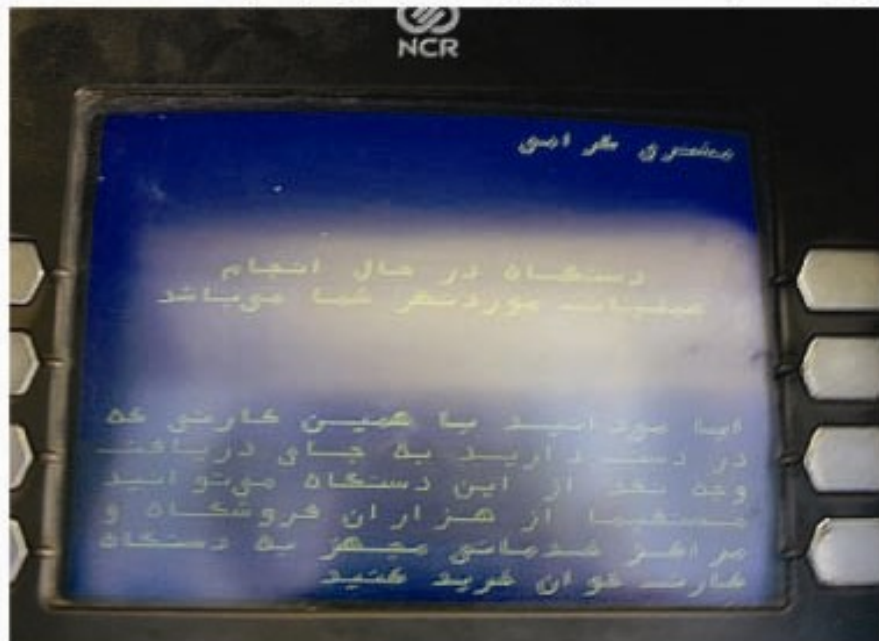 NCR
مشتری گرامی
دستگاه در حال انجام
عملیات موردنظر شما می‌باشد
ایا میدانید با همین کارتی که
در دست دارید به جای دریافت
وجه نقد از این دستگاه می‌توانید
مستقیما از هزاران فروشگاه و
مراکز خدماتی مجهز به دستگاه
کارت خوان خرید کنید